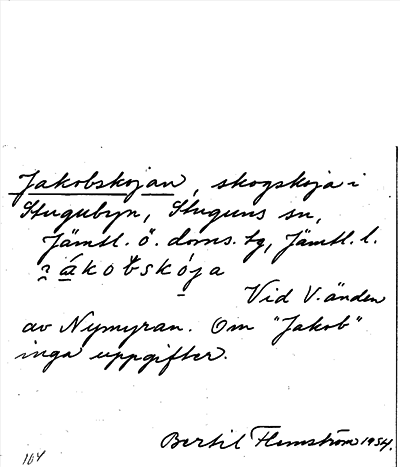 Jakobskojan, skogskoja i
Stugubyn, Stuguns sn,
Jämtl. ö. doms. tg, Jämtl. l.
Vid V. änden
av Nymyran. Om "Jakob"
inga uppgifter.
Bertil Flemström 1954.
164